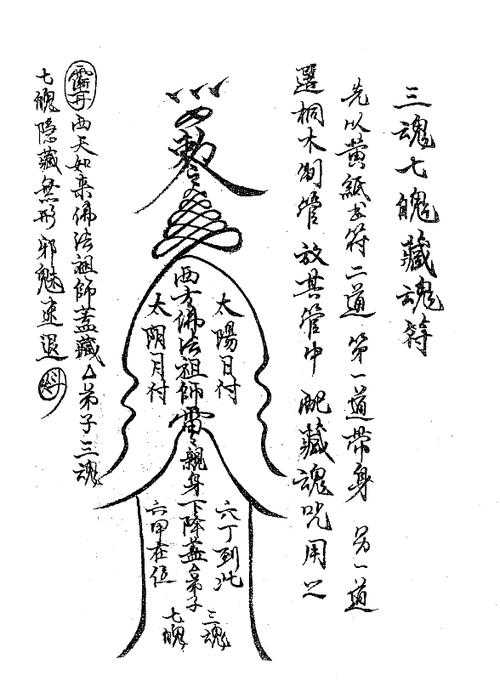 三魂七魄藏魂符
先以黃紙书符二道 第一道帶身 另一道
選桐木制管 放其管中 配藏魂咒用之
敕令
西方佛法祖師雷親身下降蓋△弟子
太陽日付
太阴月付
六丁到此
六甲在位
三魂
七魄
西天如来佛法祖師蓋藏△弟子三魂
七魄隐藏無形邪魅速退